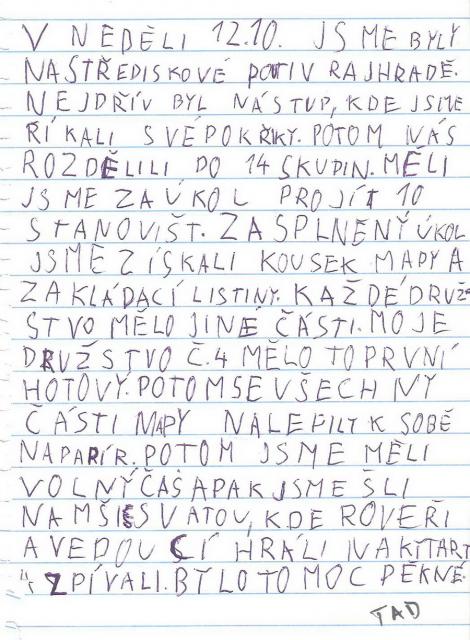 V NEDĚLI 12.10. JSME BYLY
NA STŘEDISKOVÉ POTI V RAJHRADĚ.
NEJDŘÍV BYL NÁSTUP, KDE JSME
ŘÍKALI SVÉ POKŘIKY. POTOM NÁS
ROZDĚLILI DO 14 SKUPIN. MĚLI
JSME ZA ÚKOL PROJÍT 10
STANOVIŠT. ZA SPLNENÝ ÚKOL
JSME ZÍSKALI KOUSEK MAPY A
ZAKLÁDACÍ LISTINY. KAŽDÉ DRUŽ-
STVO MĚLO JINÉ ČÁSTI. MOJE
DRUŽSTVO Č.4 MĚLO TO PRVNÍ
HOTOVY. POTOM SE VŠECHNY
ČÁSTI MAPY NALEPILY K SOBĚ
NA PAPÍR. POTOM JSME MĚLI
VOLNÝ ČAS A PAK JSME ŠLI
NA MŠI SVATOU, KDE ROVEŘI
A VEDOUCÍ HRÁLI NA KYTARY
ZPÍVALI. BYLO TO MOC PĚKNÉ.
TAD